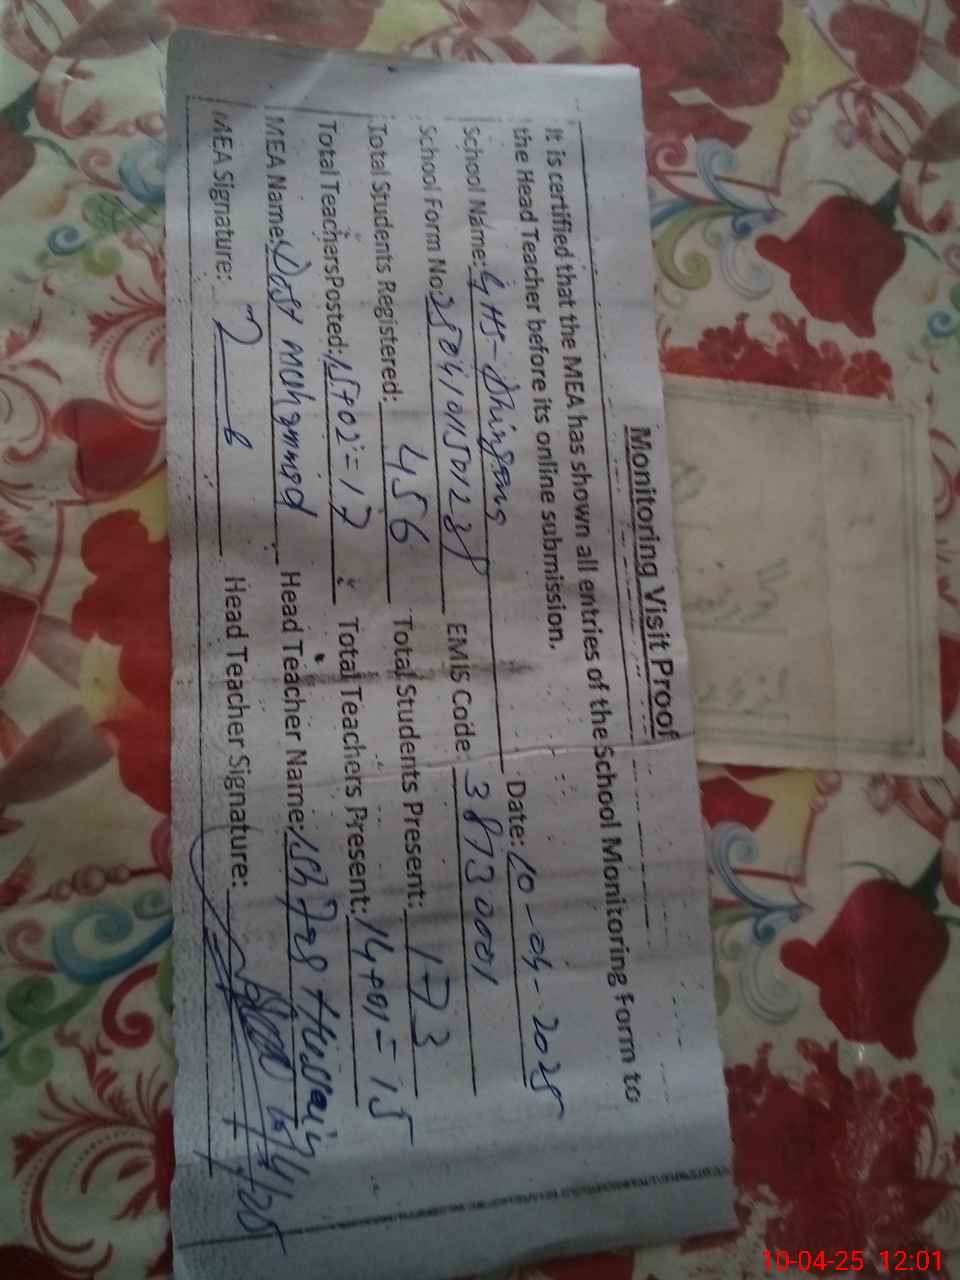 Monitoring Visit Proof
It is certified that the MEA has shown all entries of the School Monitoring Form to
the Head Teacher before its online submission.
School Name: GHS- Date: 10-04-2025
School Form No: EMIS Code: 38730001
Total Students Registered: 456 Total Students Present: 173
Total TeachersPosted: 15+02=17 Total Teachers Present: 14+01=15
MEA Name: Dost Muhammad Head Teacher Name: Hussain
MEA Signature: Head Teacher Signature:
10-04-25 12:01